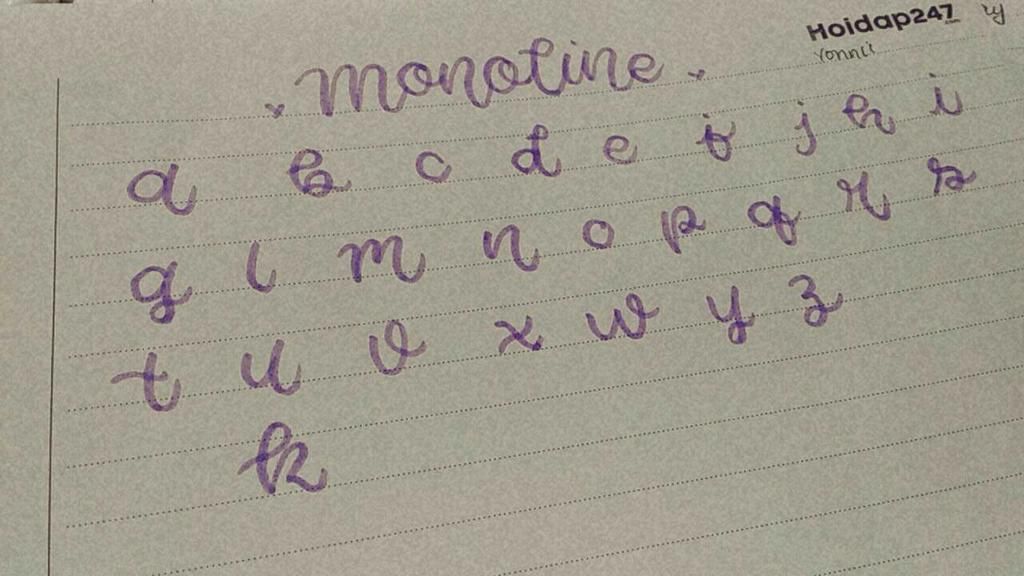 Hoidap247
monoline
a b c d e f j h i
g l m n o p q r s
t u v x w y z
k